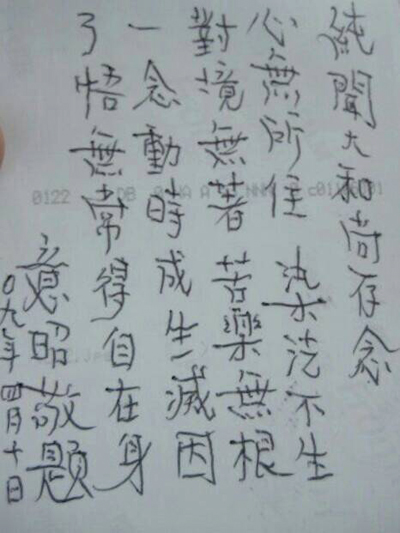 純聞大和尚存念
心無所住 染不生
對境無著 苦樂無根
一念動時 成生滅因
了悟無常 得自在身
意昭敬題
〇九年四月十日